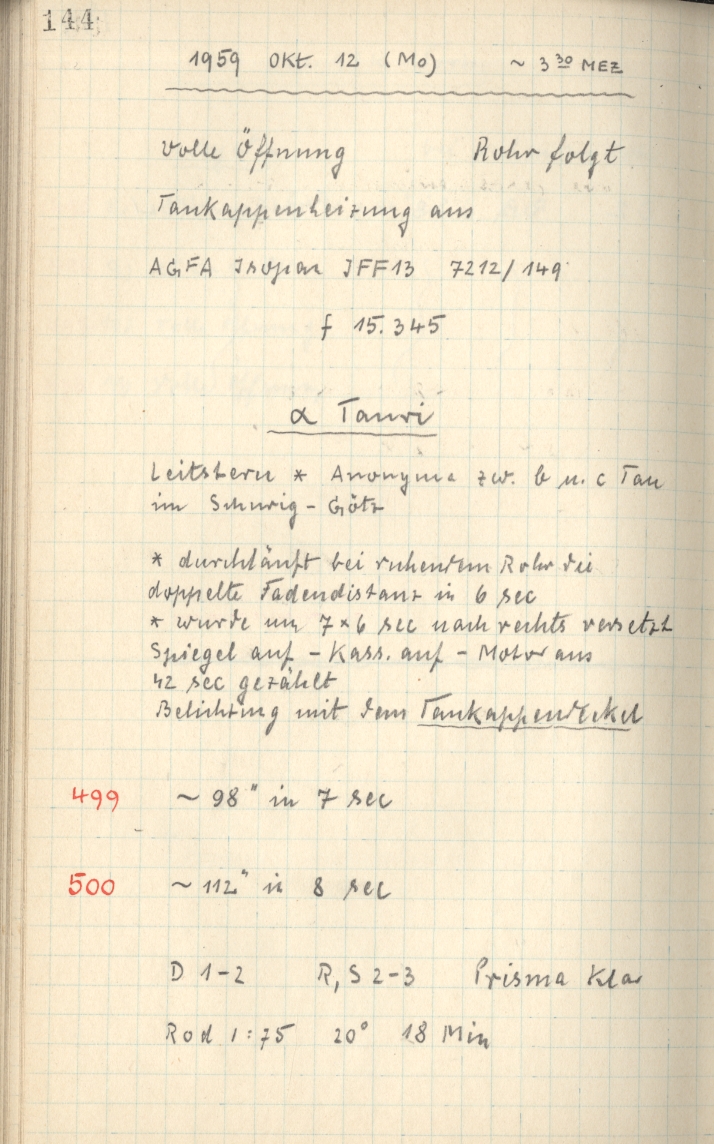 144
1959 OKT. 12 (Mo) ~ 3 30 MEZ
Volle Öffnung Rohr folgt
Taukappenheizung aus
AGFA Isopan JFF13 7212/149
f 15.345
α Tauri
Leitstern * Anonyma zw. b u. c Tau
im Schurig - Götz
* durchläuft bei ruhendem Rohr die
doppelte Fadendistanz in 6 sec
* wurde um 7×6 sec nach rechts versetzt
Spiegel auf - Kass. auf - Motor aus
42 sec gezählt
Belichtung mit dem Taukappendeckel
499 ~ 98" in 7 sec
500 ~ 112" in 8 sec
D 1-2 R, S 2-3 Prisma klar
Rod 1:75 20° 18 Min